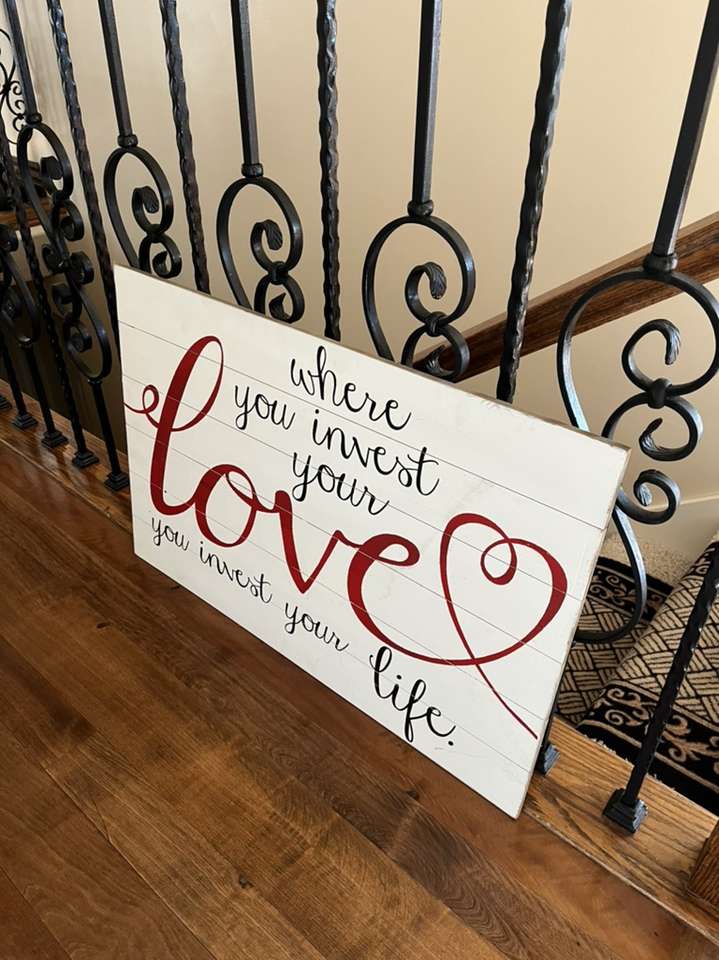 where
you invest
your
love
you invest your
life.